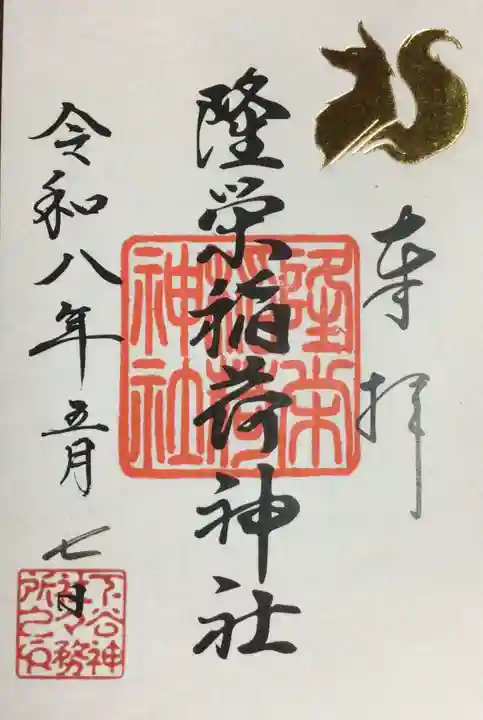 奉拝
隆栄稲荷神社
隆栄
稲荷
神社
令和八年五月七日
下谷神
社々務
所之印